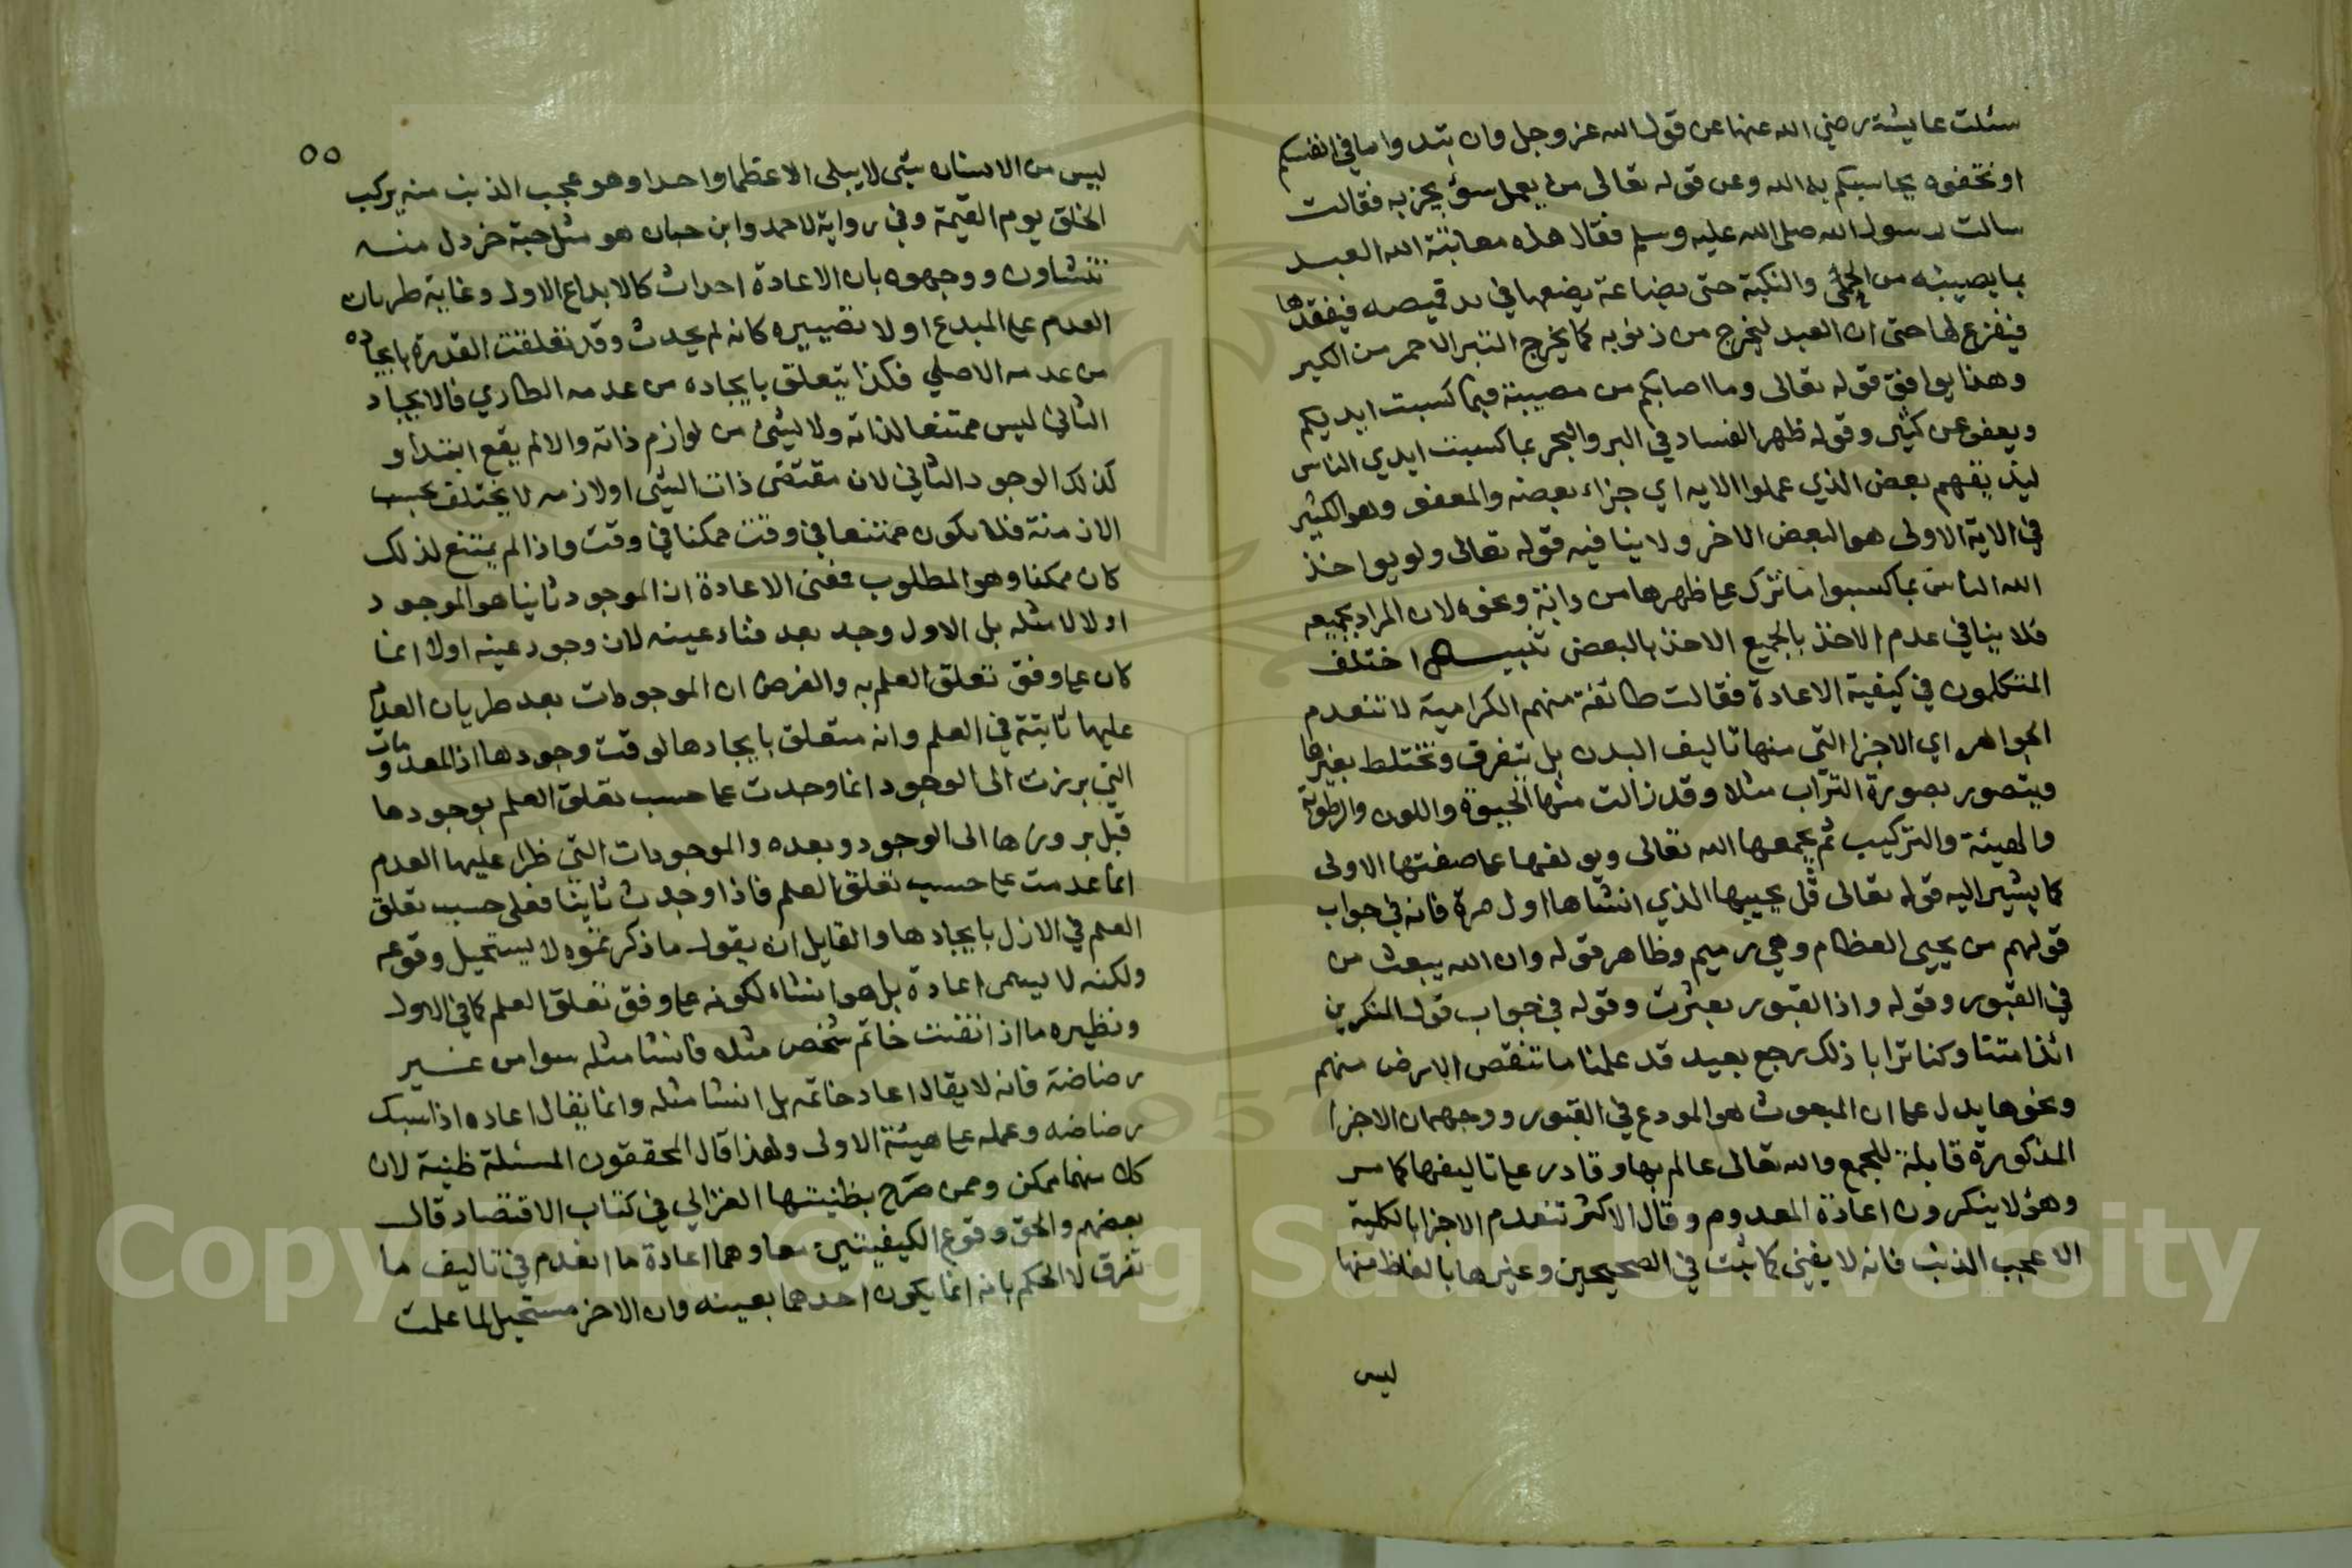 سئلت عايشة رضي الله عنها عن قول الله عز وجل وان تبدوا ما في انفسكم
او تخفوه يحاسبكم به الله وعن قوله تعالى من يعمل سوء يجز به فقالت
سالت رسول الله صلى الله عليه وسلم فقال هذه معاتبة الله العبد
بما يصيبه من الحمى والنكبة حتى بضاعة يضعها في يد قميصه فيفقدها
فيفزع لها حتى ان العبد ليخرج من ذنوبه كما يخرج التبر الاحمر من الكير
وهذا يوافق قوله تعالى وما اصابكم من مصيبة فبما كسبت ايديكم
ويعفو عن كثير وقوله ظهر الفساد في البر والبحر بما كسبت ايدي الناس
ليذيقهم بعض الذي عملوا الايه اي جزاء بعضه والمعفو وهو الكثير
في الاية الاولى هو البعض الاخر ولا ينافيه قوله تعالى ولو يواخذ
الله الناس بما كسبوا ما ترك على ظهرها من دابة ونحوه لان المراد بجميعه
فلا ينافي عدم الاخذ بالجميع الاخذ بالبعض تنبيه اختلف
المتكلمون في كيفية الاعادة فقالت طائفة منهم الكرامية لا تنعدم
الجواهر اي الاجزا التي منها تاليف البدن بل تتفرق وتختلط بغيرها
ويتصور بصورة التراب مثلا وقد زالت منها الحيوة واللون والرطوبة
والهيئة والتركيب ثم يجمعها الله تعالى ويولفها على صفتها الاولى
كما يشير اليه قوله تعالى قل يحييها الذي انشاها اول مرة فانه في جواب
قولهم من يحيي العظام وهي رميم وظاهر قوله وان الله يبعث من
في القبور وقوله واذا القبور بعثرت وقوله في جواب قول المنكرين
ائذا متنا وكنا ترابا ذلك رجع بعيد قد علمنا ما تنقص الارض منهم
ونحوها يدل على ان المبعوث هو المودع في القبور ووجهه ان الاجزا
المذكورة قابلة للجمع والله تعالى عالم بها وقادر على تاليفها كما مر
وهؤلا ينكرون اعادة المعدوم وقال الاكثر تنعدم الاجزا بالكلية
الا عجب الذنب فانه لا يفنى كما ثبت في الصحيحين وغيرها بالفاظ منها
ليس
٥٥
ليس من الانسان شي لا يبلى الا عظما واحدا وهو عجب الذنب منه يركب
الخلق يوم القيمة وفي رواية لاحمد وابن حبان هو مثل حبة خردل منه
تنشاون ووجهوه بان الاعادة احداث كالابداع الاول وغاية طريان
العدم على المبدع اولا تصييره كانه لم يحدث وقد تعلقت القدرة بايجاده
من عدمه الاصلي فكذا يتعلق بايجاده من عدمه الطاري فالايجاد
الثاني ليس ممتنعا لذاته ولا لشي من لوازم ذاته والا لم يقع ابتدا و
كذلك الوجود الثاني لان مقتضى ذات الشي او لازمه لا يختلف بحسب
الازمنة فلا يكون ممتنعا في وقت ممكنا في وقت واذا لم يمتنع لذلك
كان ممكنا وهو المطلوب فمعنى الاعادة ان الموجود ثانيا هو الموجود
اولا لا مثله بل الاول وجد بعد فناء عينه لان وجود عينه اولا انما
كان على وفق تعلق العلم به والفرض ان الموجودات بعد طريان العدم
عليها ثابتة في العلم وانه متعلق بايجادها لوقت وجودها اذ المعدومات
التي برزت الى الوجود انما وجدت على حسب تعلق العلم بوجودها
قبل بروزها الى الوجود وبعده والموجودات التي طرا عليها العدم
انما عدمت على حسب تعلق العلم فاذا وجدت ثانيا فعلى حسب تعلق
العلم في الازل بايجادها ولقايل ان يقول ما ذكرتموه لا يستحيل وقوعه
ولكنه لا يسمى اعادة بل هو انشاء لكونه على وفق تعلق العلم كما في الاول
ونظيره ما اذا نقشت خاتم شخص مثله فانشا مثله سوا من غير
رضاضة فانه لا يقال اعاد خاتمه بل انشا مثله وانما يقال اعاده اذا سبك
رضاضه وعمله على هيئة الاولى ولهذا قال المحققون المسئلة ظنية لان
كلا منهما ممكن وممن صرح بظنيتها الغزالي في كتاب الاقتصاد قال
بعضهم والحق وقوع الكيفيتين معا وهما اعادة ما انعدم في تاليف ما
تفرق لا الحكم بانه انما يكون احدهما بعينه وان الاخر مستحيل لما علمت
Copyright © King Saud University